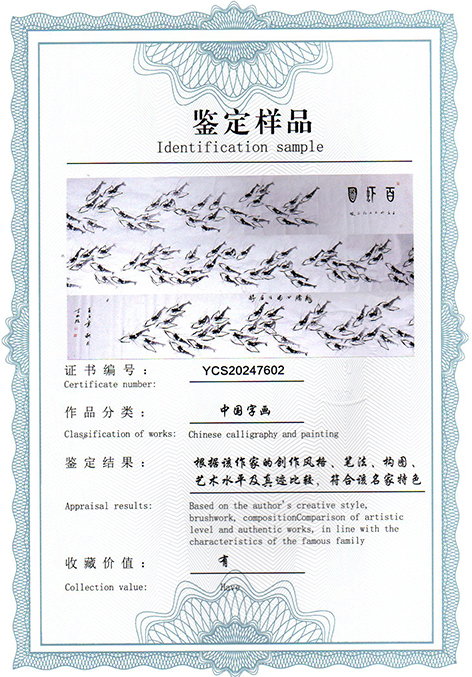 鉴定样品
Identification sample
百虾图
证书编号：
YCS20247602
Certificate number:
作品分类：
中国字画
Classification of works: Chinese calligraphy and painting
鉴定结果：
根据该作家的创作风格、笔法、构图、
艺术水平及真迹比较，符合该名家特色
Appraisal results:
Based on the author's creative style,
brushwork, compositionComparison of artistic
level and authentic works, in line with the
characteristics of the famous family
收藏价值：
有
Collection value:
Have